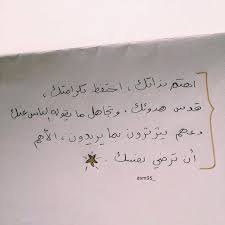 اهتم بذاتك ، احتفظ بكرامتك ،
قدس هدوئك . وتجاهل ما يقوله الناس عنك
دعهم يثرثرون بما يريدون ، الأهم
أن ترضي نفسك .